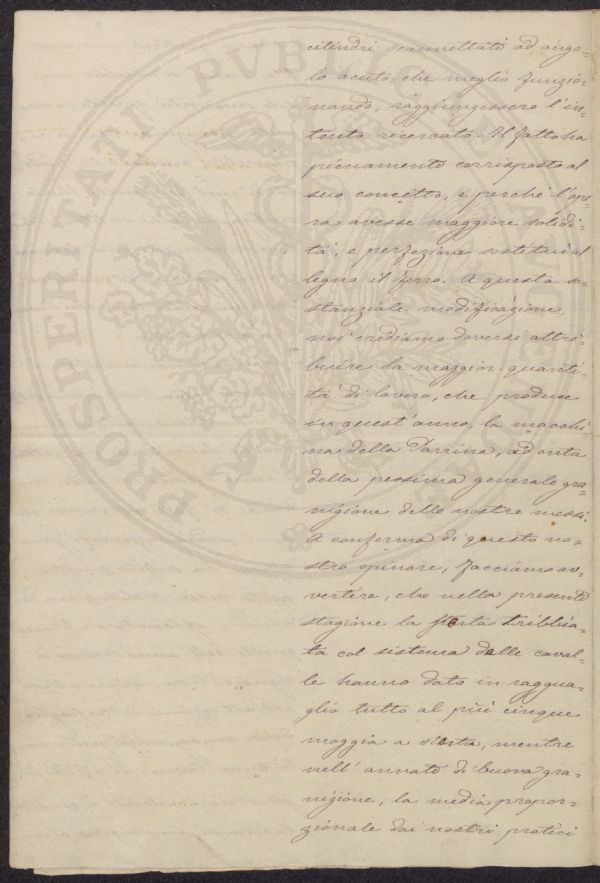 cilindri scannettati ad ango=
lo acuto, che meglio funzio=
nando, raggiungessero l'in=
tento ricercato. Il fatto ha
pienamente corrisposto al
suo concetto, e perchè l'ope=
ra avesse maggiore solidi=
tà, e perfezione sostituì al
legno il ferro. A questa so=
stanziale modificazione,
noi crediamo doversi attri=
buire la maggior quanti=
tà di lavoro, che produce
in quest'anno, la macchi=
na della Parrina, ad onta
della pessima generale gra=
nigione delle nostre messi.
A conferma di questo no=
stro opinare, facciamo av=
vertire, che nella presente
stagione la tribbia=
ta col sistema delle caval=
le hanno dato in raggua=
glio tutto al più cinque
moggia a , mentre
nell'annate di buona gra=
nigione, la media propor=
zionale dai nostri pratici
PROSPERITATI PVBLICAE